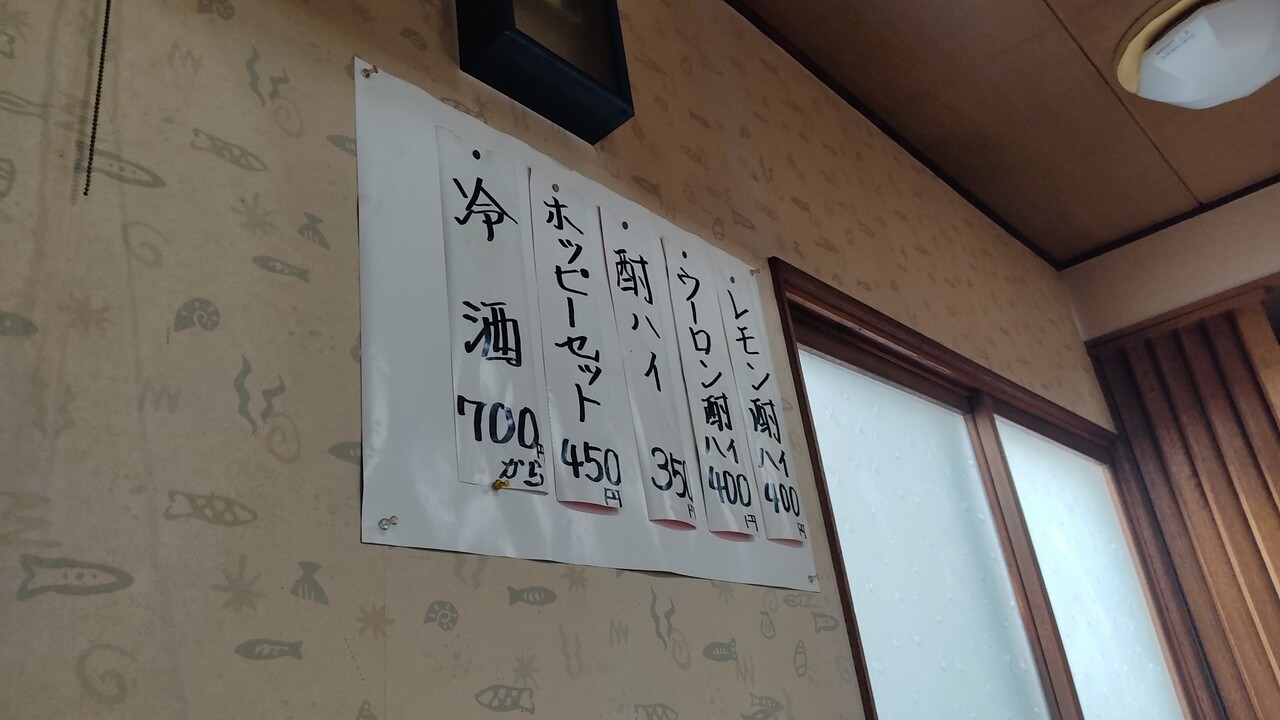 ・レモン酎ハイ400円
・ウーロン酎ハイ400円
・酎ハイ 350円
・ホッピーセット450円
・冷酒700円から